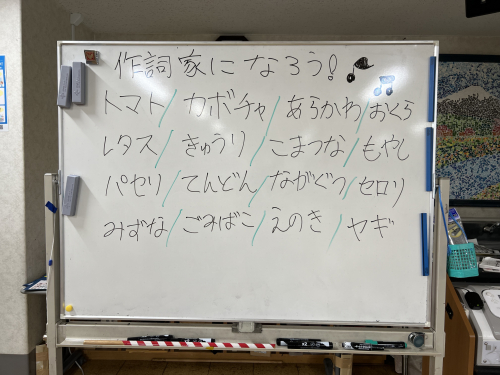 作詞家になろう!
トマト/カボチャ/あらかわ/おくら
レタス/きゅうり/こまつな/もやし
パセリ/てんどん/ながぐつ/セロリ
みずな/ごみばこ/えのき/ヤギ